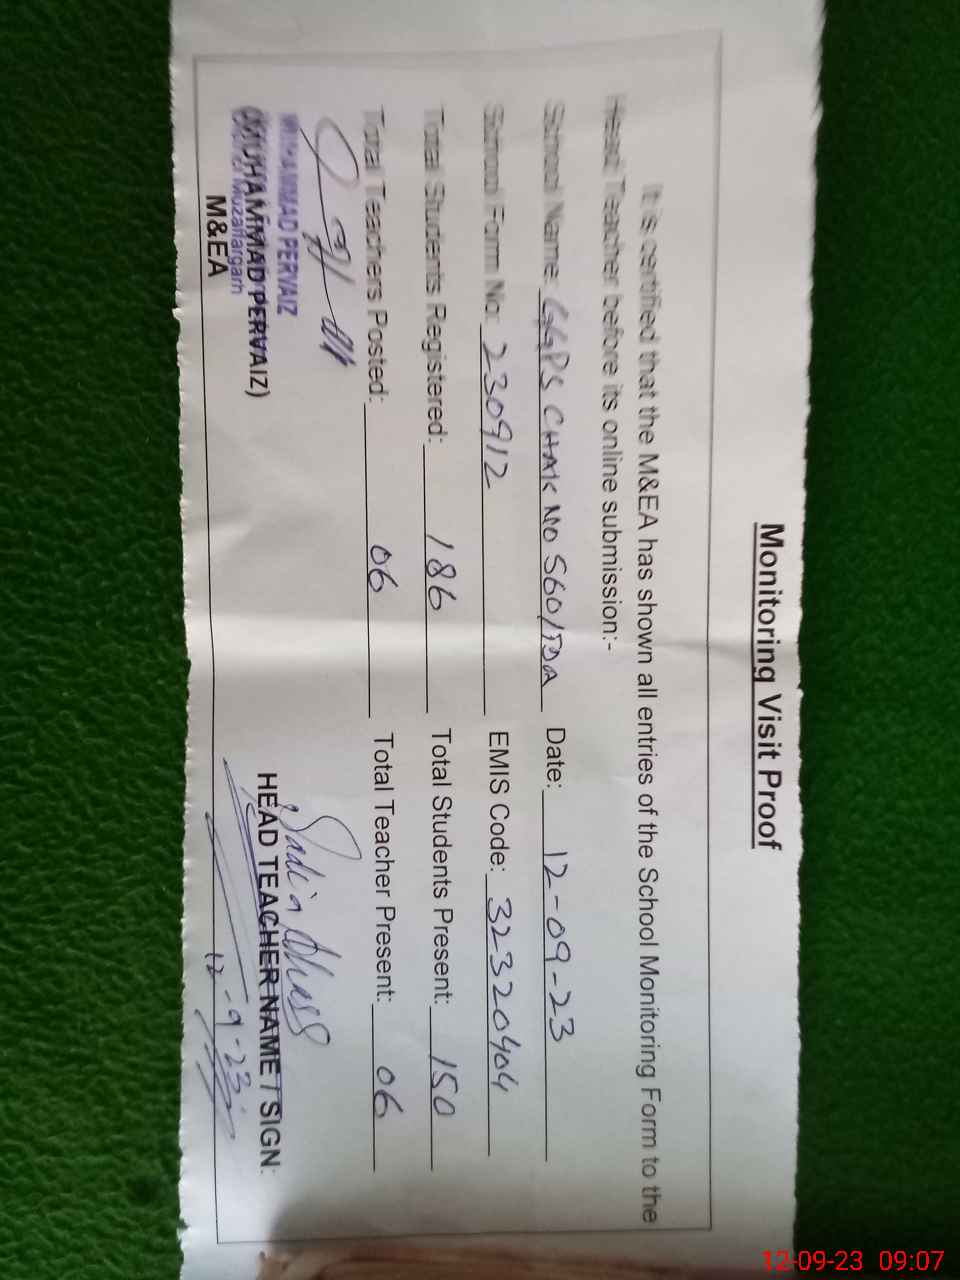 Monitoring Visit Proof
It is certified that the M&EA has shown all entries of the School Monitoring Form to the
Head Teacher before its online submission:-
School Name: GGPS CHAK NO 560/TDA Date: 12-09-23
School Form No: 230912 EMIS Code: 32320404
Total Students Registered: 186 Total Students Present: 150
Total Teachers Posted: 06 Total Teacher Present: 06
MUHAMMAD PERVAIZ
(MUHAMMAD PERVAIZ)
Muzaffargarh
M&EA
Sadia
HEAD TEACHER NAME / SIGN:
12-9-23
12-09-23 09:07